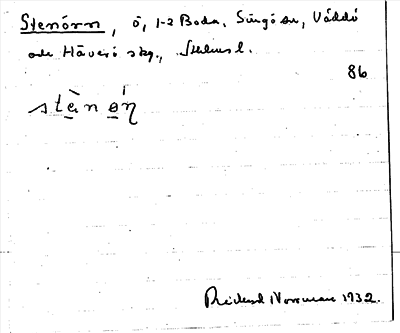 Stenörn, ö, 1-2 Boda, Singö sn, Väddö
och Häverö skg., Sthlms l.
86
stènǿn
Rickard Norrman 1932.